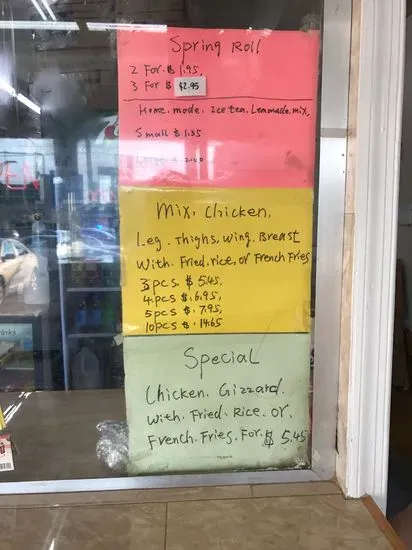 Spring Roll
2 For $ 1.95
3 For $ $2.95
Home. made. Ice tea. Lemonade. mix,
Small $ 1.35
Large
Mix, Chicken,
Leg. Thighs, wing. Breast
With. Fried, rice, or French Fries
3 pcs. $ 5.45,
4. pcs $. 6.95,
5 pcs $. 7.95,
10 pcs $. 14.65
Special
Chicken. Gizzard.
With. Fried. Rice. or.
French. Fries. For. $ 5.45